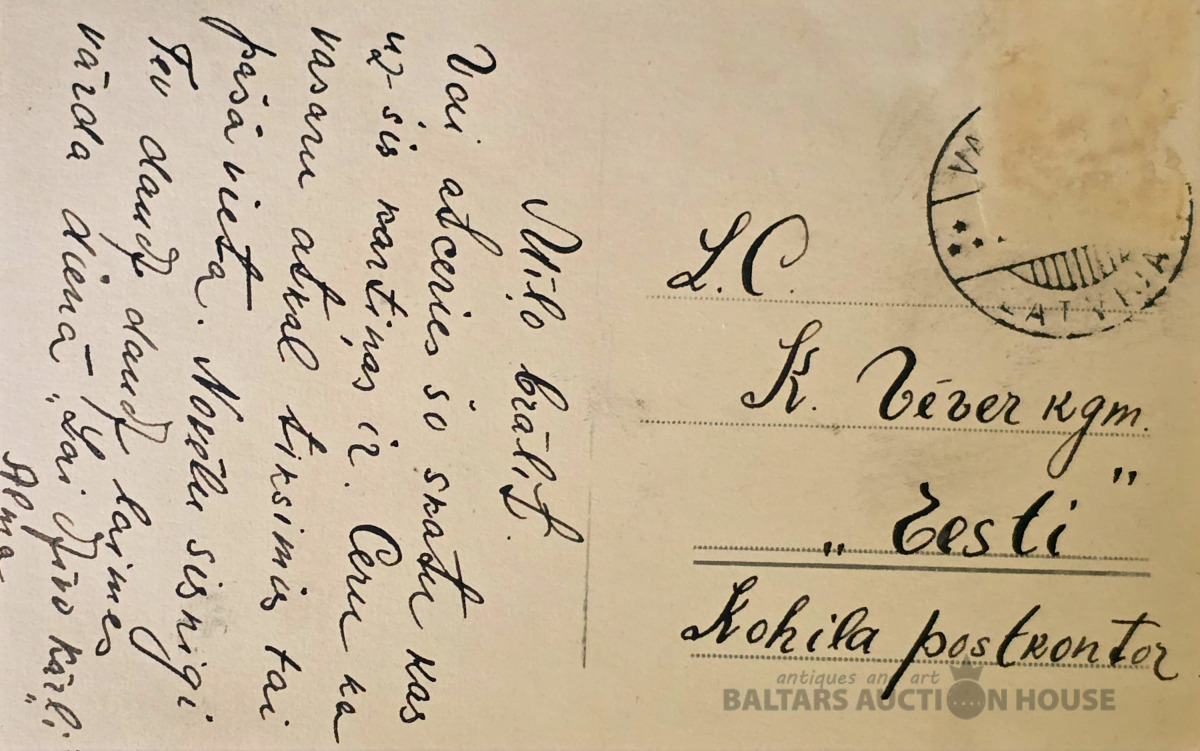 Mīļo brālit.
Vai atceries šo skatu kas
uz šis kartiņas ir. Ceru ka
vasaru atkal tiksimis tai
paša vieta. Novēlu sirsnigi
Tev daudz daudz laimes
vārda dienā „Lai dzivo Kārli"
Alma
L.C.
K. Véver kgm.
„Eesti"
Kohila postkontor
LATVIJA
antiques and art
BALTARS AUCTION HOUSE